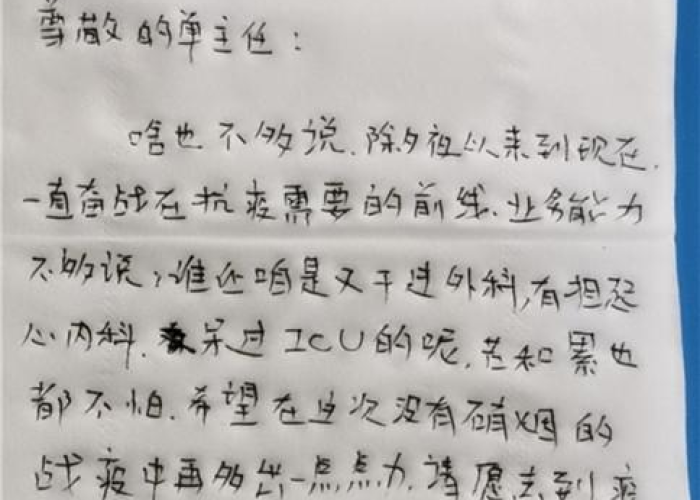 尊敬的单主任：
啥也不多说，除夕夜以来到现在，
一直奋战在抗疫需要的前线，业务能力
不多说，谁让咱是又干过外科，有担
心内科，呆过ICU的呢，苦和累也
都不怕，希望在这次没有硝烟的
战疫中再多出一点点力，请愿去到疫